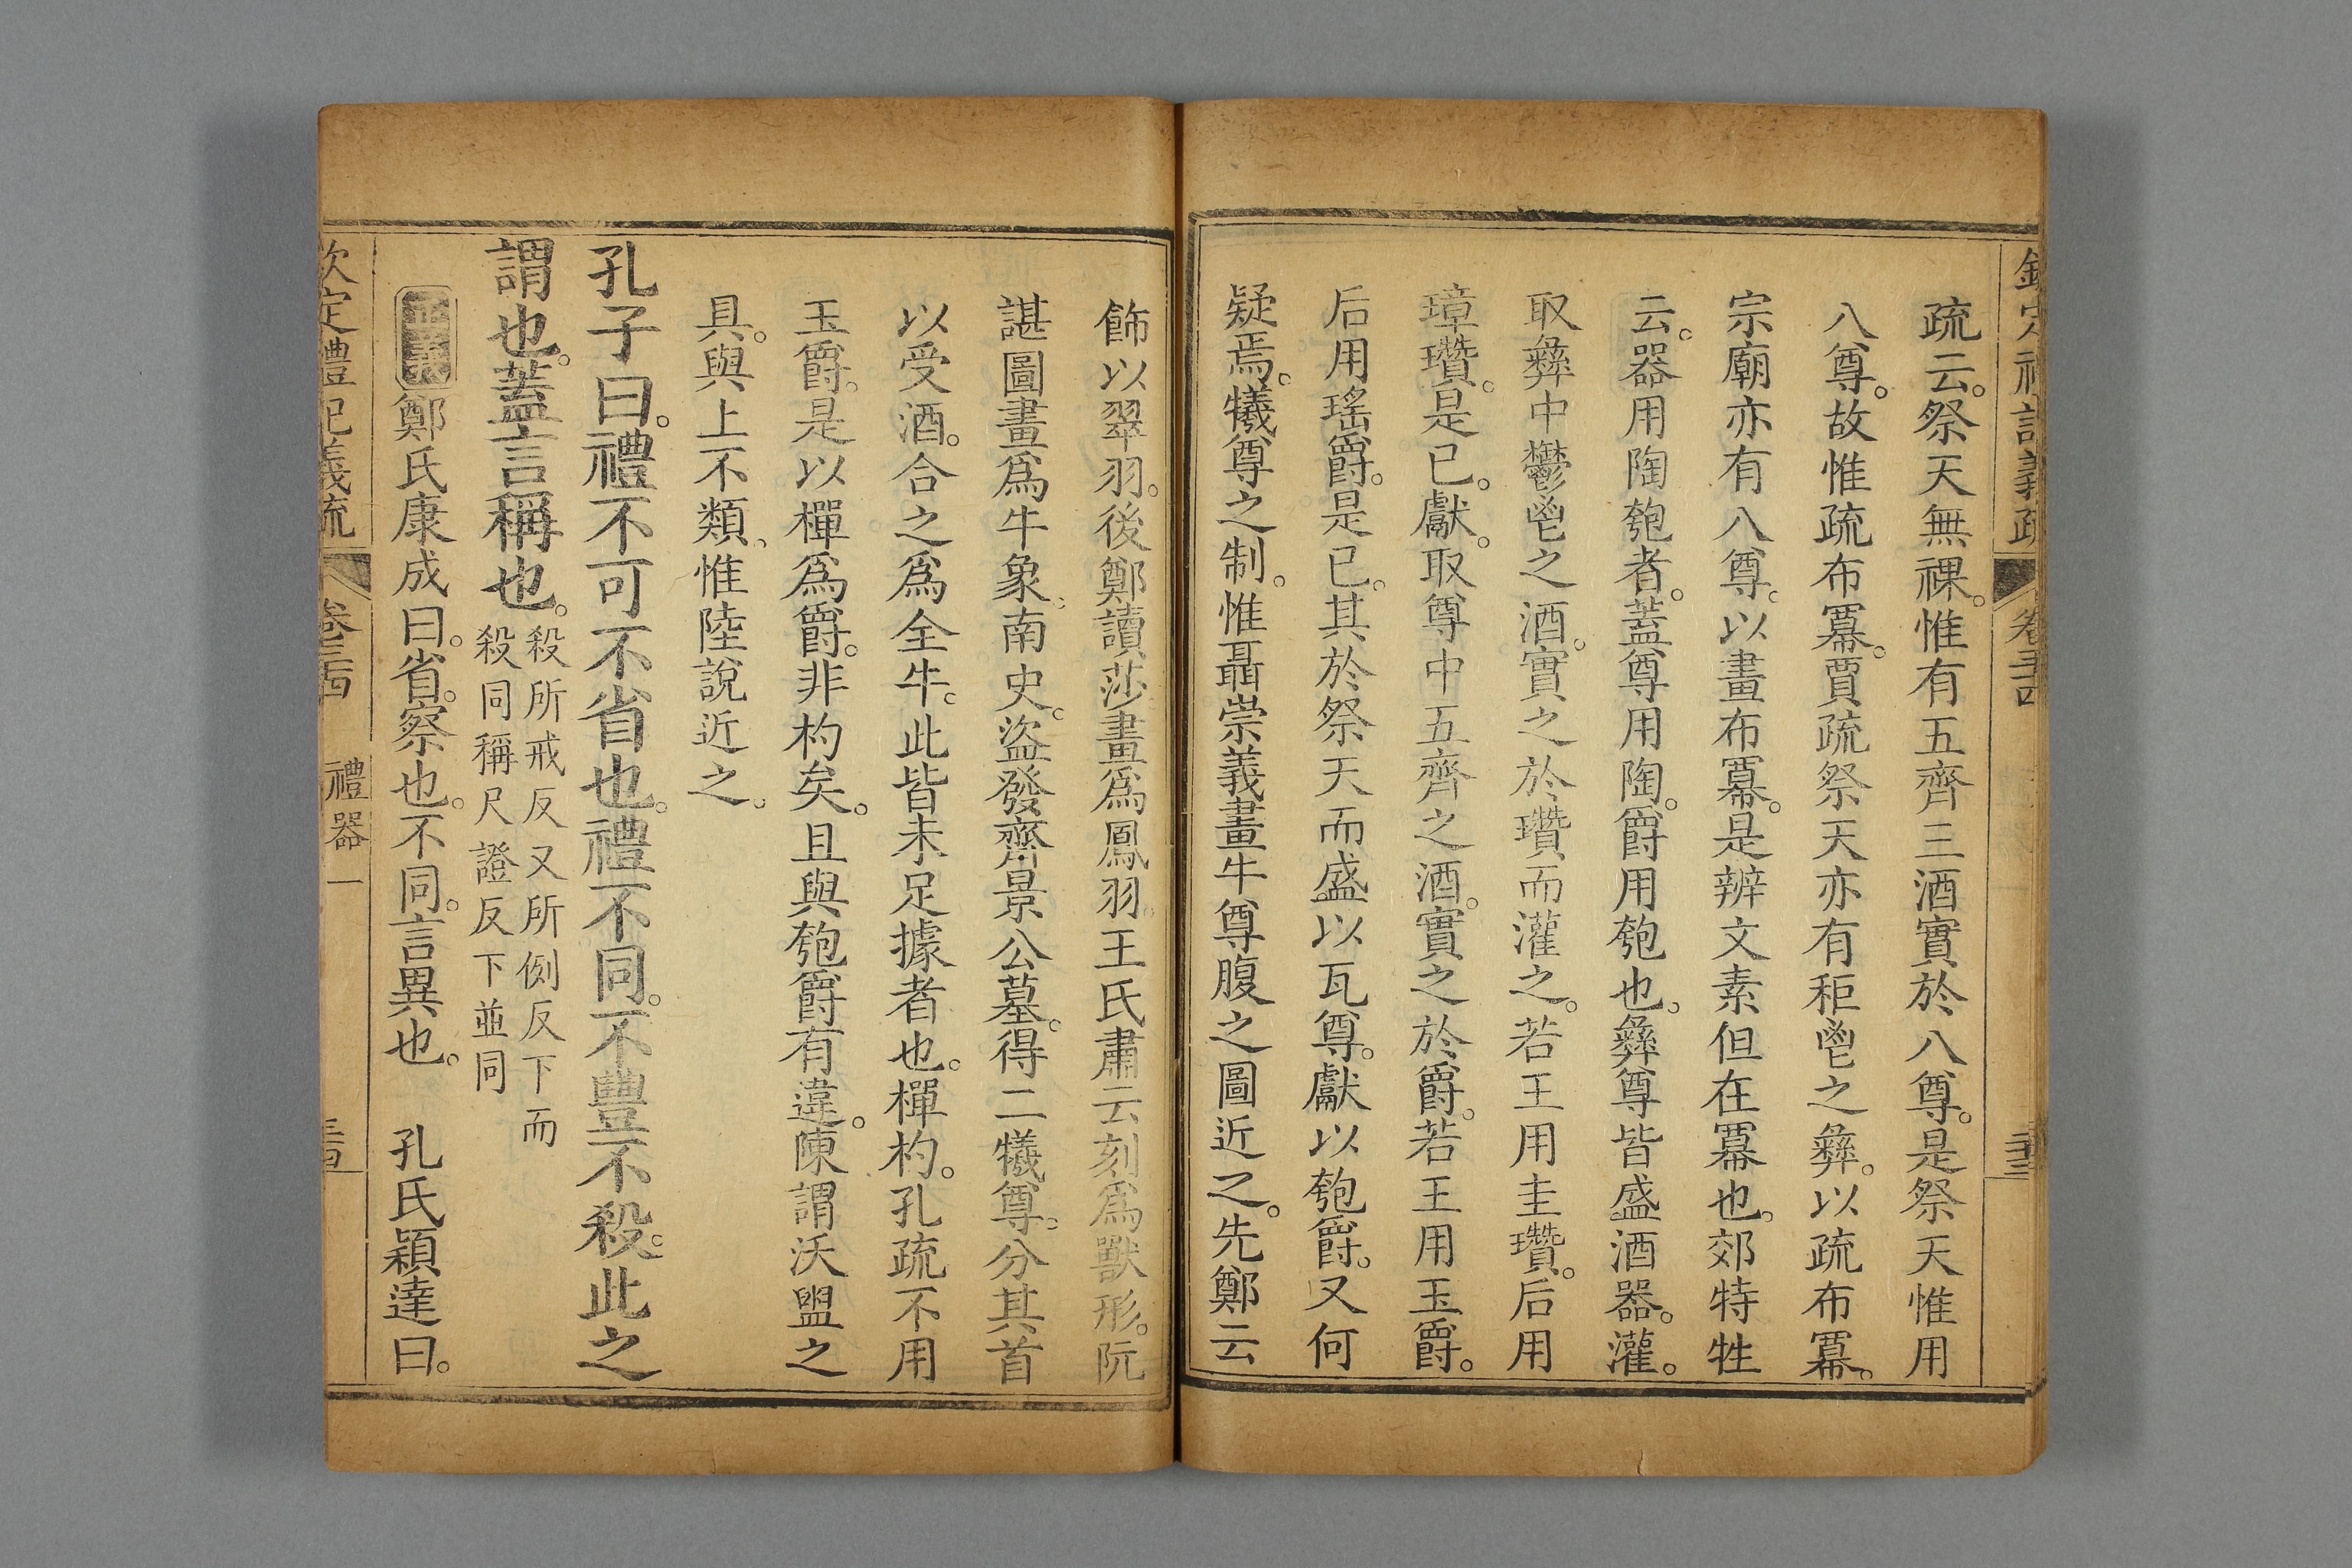 欽定禮記義疏 卷三十四 三十三
疏云。祭天無祼。惟有五齊三酒實於八尊。是祭天惟用
八尊。故惟疏布冪。賈疏祭天亦有秬鬯之彝。以疏布冪。
宗廟亦有八尊。以畫布冪。是辨文素但在冪也。郊特牲
云。器用陶匏者。蓋尊用陶。爵用匏也。彝尊皆盛酒器。灌。
取彝中鬱鬯之酒。實之於瓚而灌之。若王用圭瓚。后用
璋瓚。是已。獻。取尊中五齊之酒。實之於爵。若王用玉爵。
后用瑤爵。是已。其於祭天而盛以瓦尊。獻以匏爵。又何
疑焉。犧尊之制。惟聶崇義畫牛尊腹之圖近之。先鄭云
飾以翠羽。後鄭讀莎畫爲鳳羽。王氏肅云刻爲獸形。阮
諶圖畫爲牛象。南史。盜發齊景公墓。得二犧尊。分其首
以受酒。合之爲全牛。此皆未足據者也。樿杓。孔疏不用
玉爵。是以樿爲爵。非杓矣。且與匏爵有違。陳謂沃盥之
具。與上不類。惟陸說近之。
孔子曰。禮不可不省也。禮不同。不豐不殺。此之
謂也。蓋言稱也。殺所戒反又所例反下而
殺同稱尺證反下並同
正義 鄭氏康成曰。省。察也。不同。言異也。 孔氏穎達曰。
欽定禮記義疏 卷三十四 禮器一 三十四